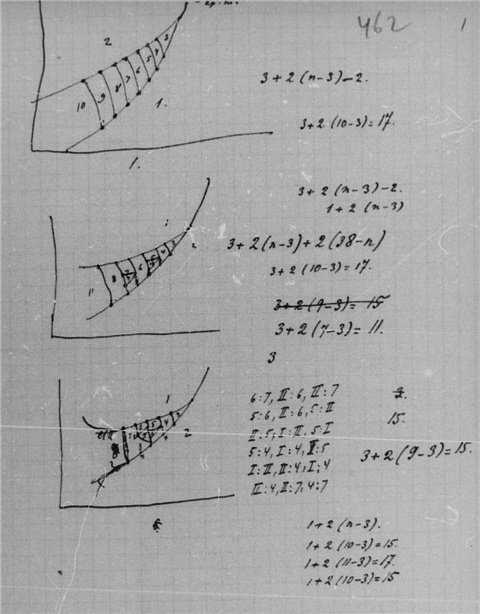 462
1
2
3+2(n-3)-2.
10 9 8 7 6 5 4 3
1.
3+2(10-3)=17.
1.
3+2(n-3)-2.
1+2(n-3)
3+2(n-3)+2(38-n)
3+2(10-3)=17.
11 8
3+2(9-3)=15
3+2(7-3)=11.
3
6:7, II:6, II:7
5:6, II:6, 5:II
15.
II:5; I:II, 5I
5:4, I:4, I:5
3+2(9-3)=15.
I:II, II:4, I:4
II:4, II:7, 4:7
1+2(n-3).
1+2(10-3)=15.
1+2(11-3)=17.
1+2(10-3)=15